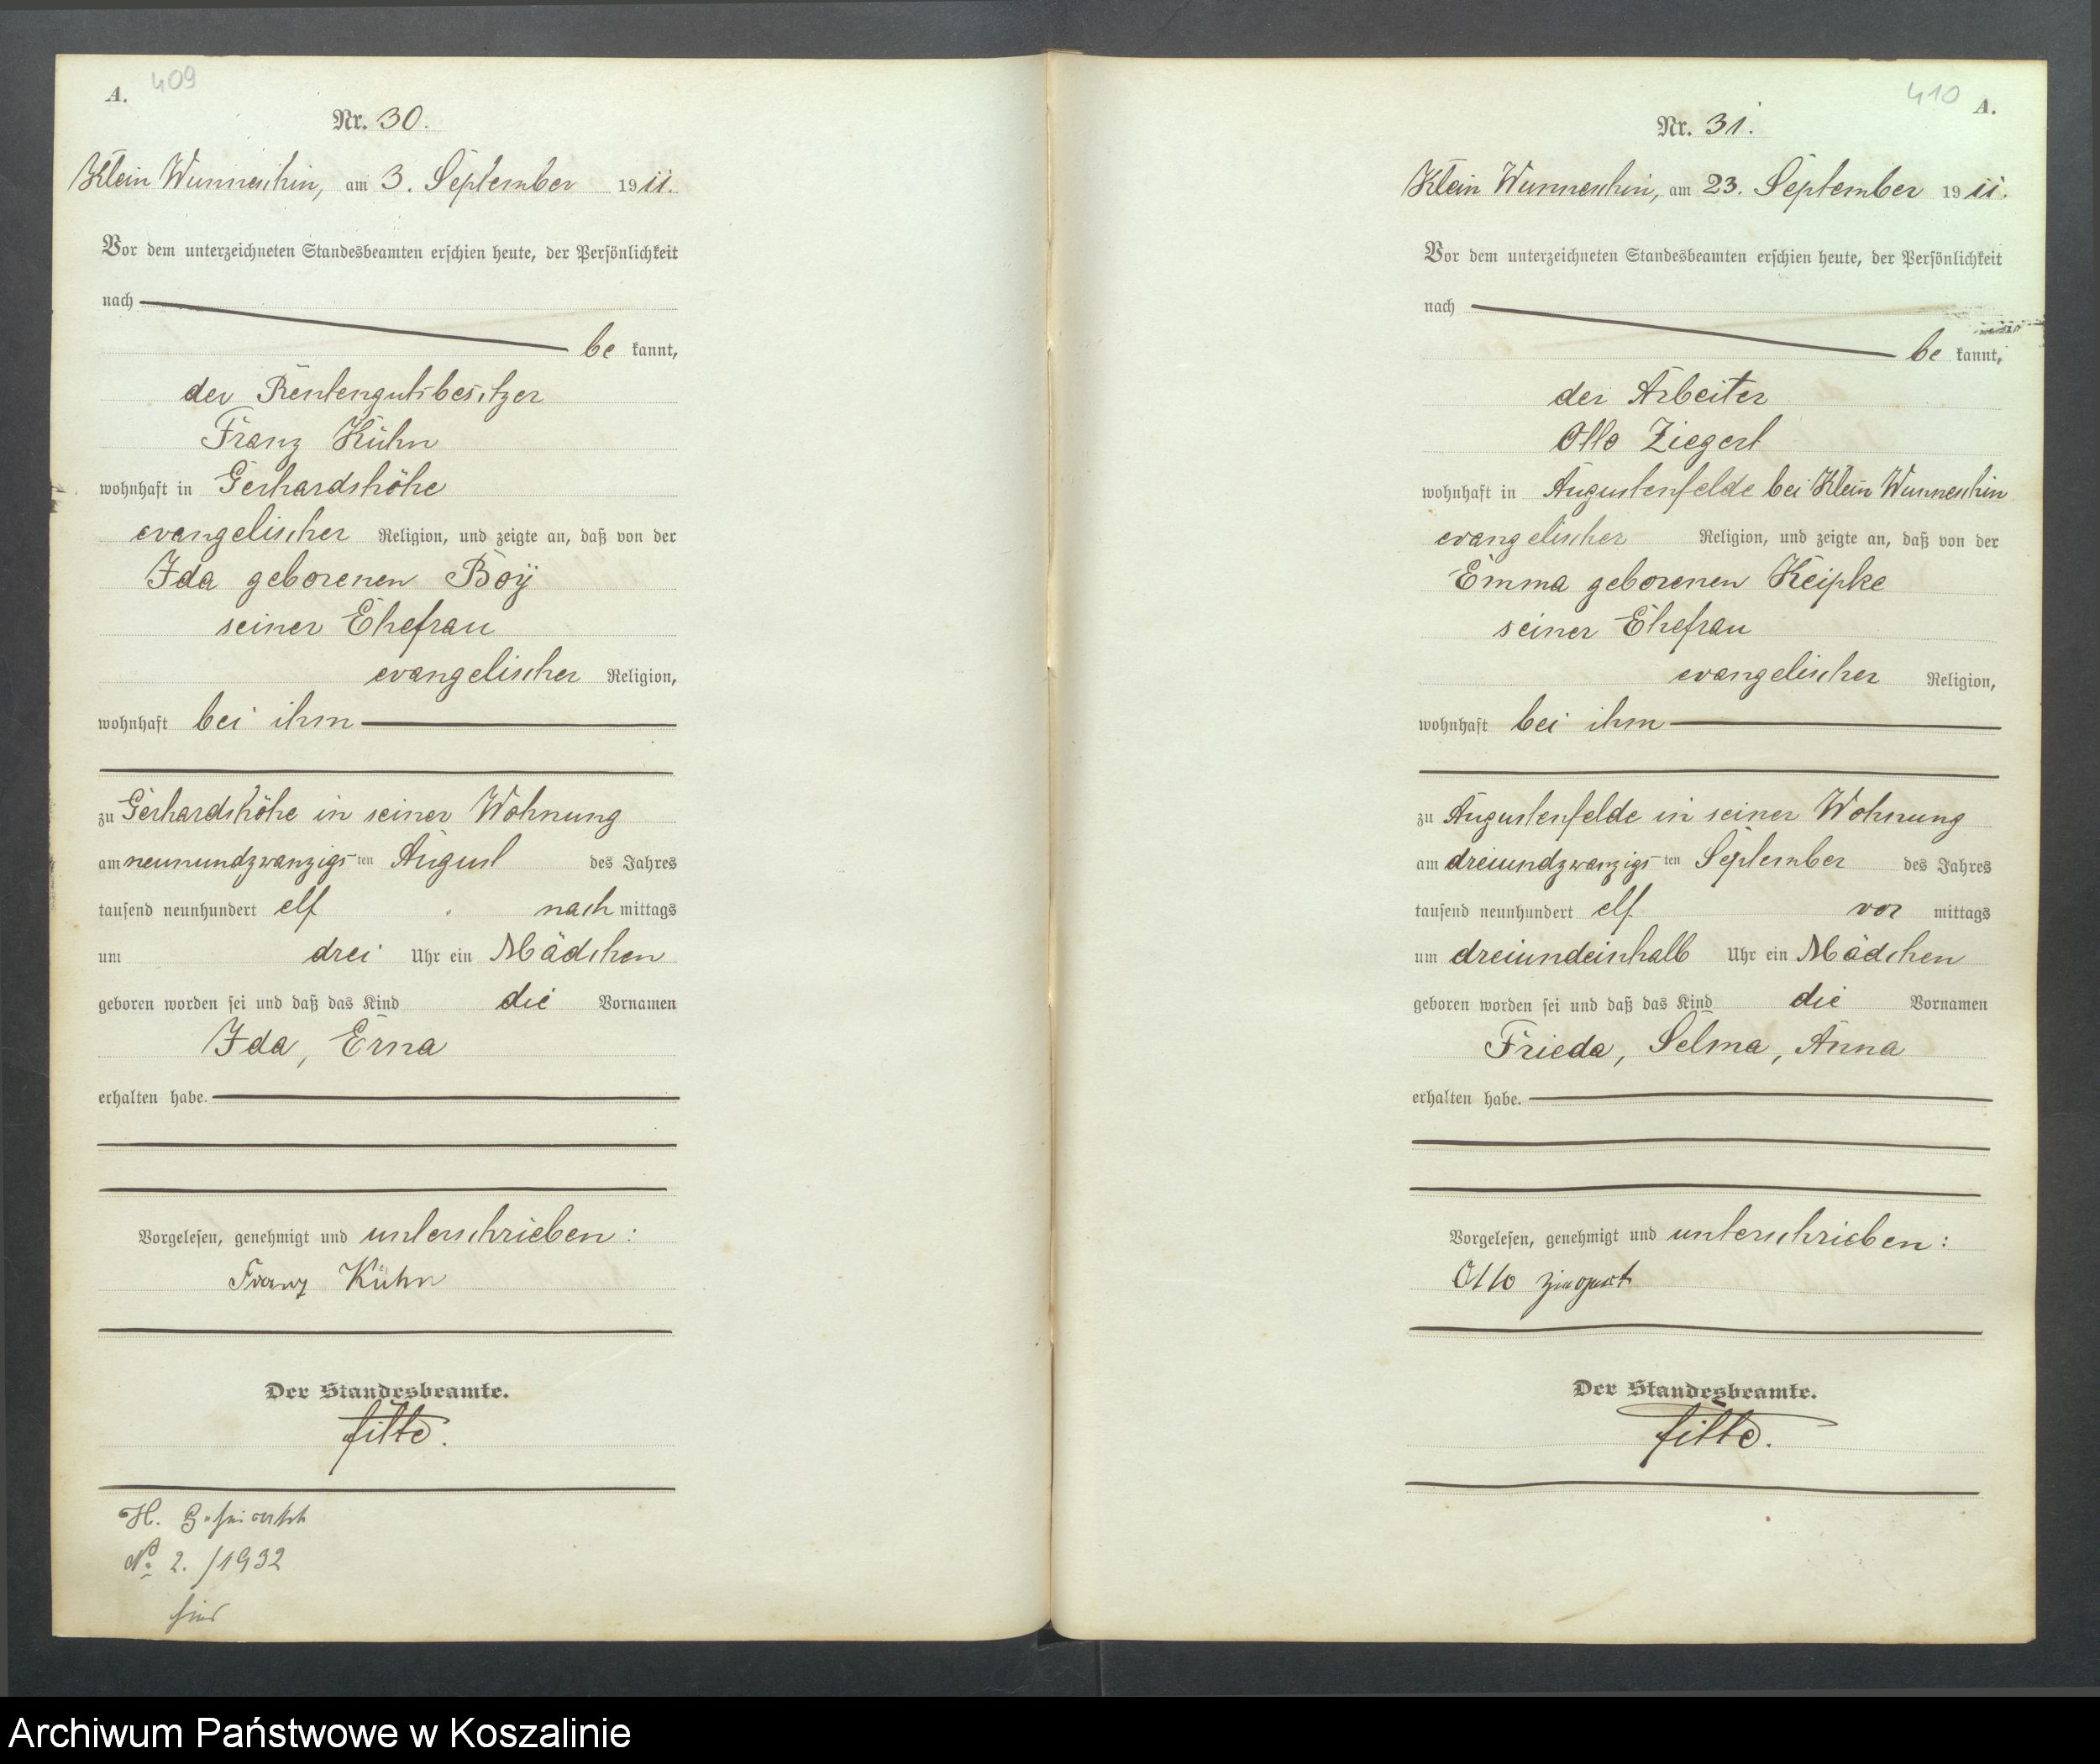 A. 409
Nr. 30.
Klein Wunneschin, am 3. September 1911.
Vor dem unterzeichneten Standesbeamten erschien heute, der Persönlichkeit
nach
be kannt,
der Rentengutsbesitzer
Franz Kühn
wohnhaft in Gerhardshöhe
evangelischer Religion, und zeigte an, daß von der
Ida geborenen Boÿ
seiner Ehefrau
evangelischer Religion,
wohnhaft bei ihm
zu Gerhardshöhe in seiner Wohnung
am neunundzwanzigsten August des Jahres
tausend neunhundert elf nachmittags
um drei Uhr ein Mädchen
geboren worden sei und daß das Kind die Vornamen
Ida, Erna
erhalten habe.
Vorgelesen, genehmigt und unterschrieben:
Franz Kühn
Der Standesbeamte.
H.
No 2. /1932
410 A.
Nr. 31.
Klein Wunneschin, am 23. September 1911.
Vor dem unterzeichneten Standesbeamten erschien heute, der Persönlichkeit
nach
be kannt,
der Arbeiter
Otto Ziegert
wohnhaft in Augustenfelde bei Klein Wunneschin
evangelischer Religion, und zeigte an, daß von der
Emma geborenen Keipke
seiner Ehefrau
evangelischer Religion,
wohnhaft bei ihm
zu Augustenfelde in seiner Wohnung
am dreiundzwanzigsten September des Jahres
tausend neunhundert elf vor mittags
um dreiundeinhalb Uhr ein Mädchen
geboren worden sei und daß das Kind die Vornamen
Frieda, Selma, Anna
erhalten habe.
Vorgelesen, genehmigt und unterschrieben:
Otto Ziegert
Der Standesbeamte.
Archiwum Państwowe w Koszalinie